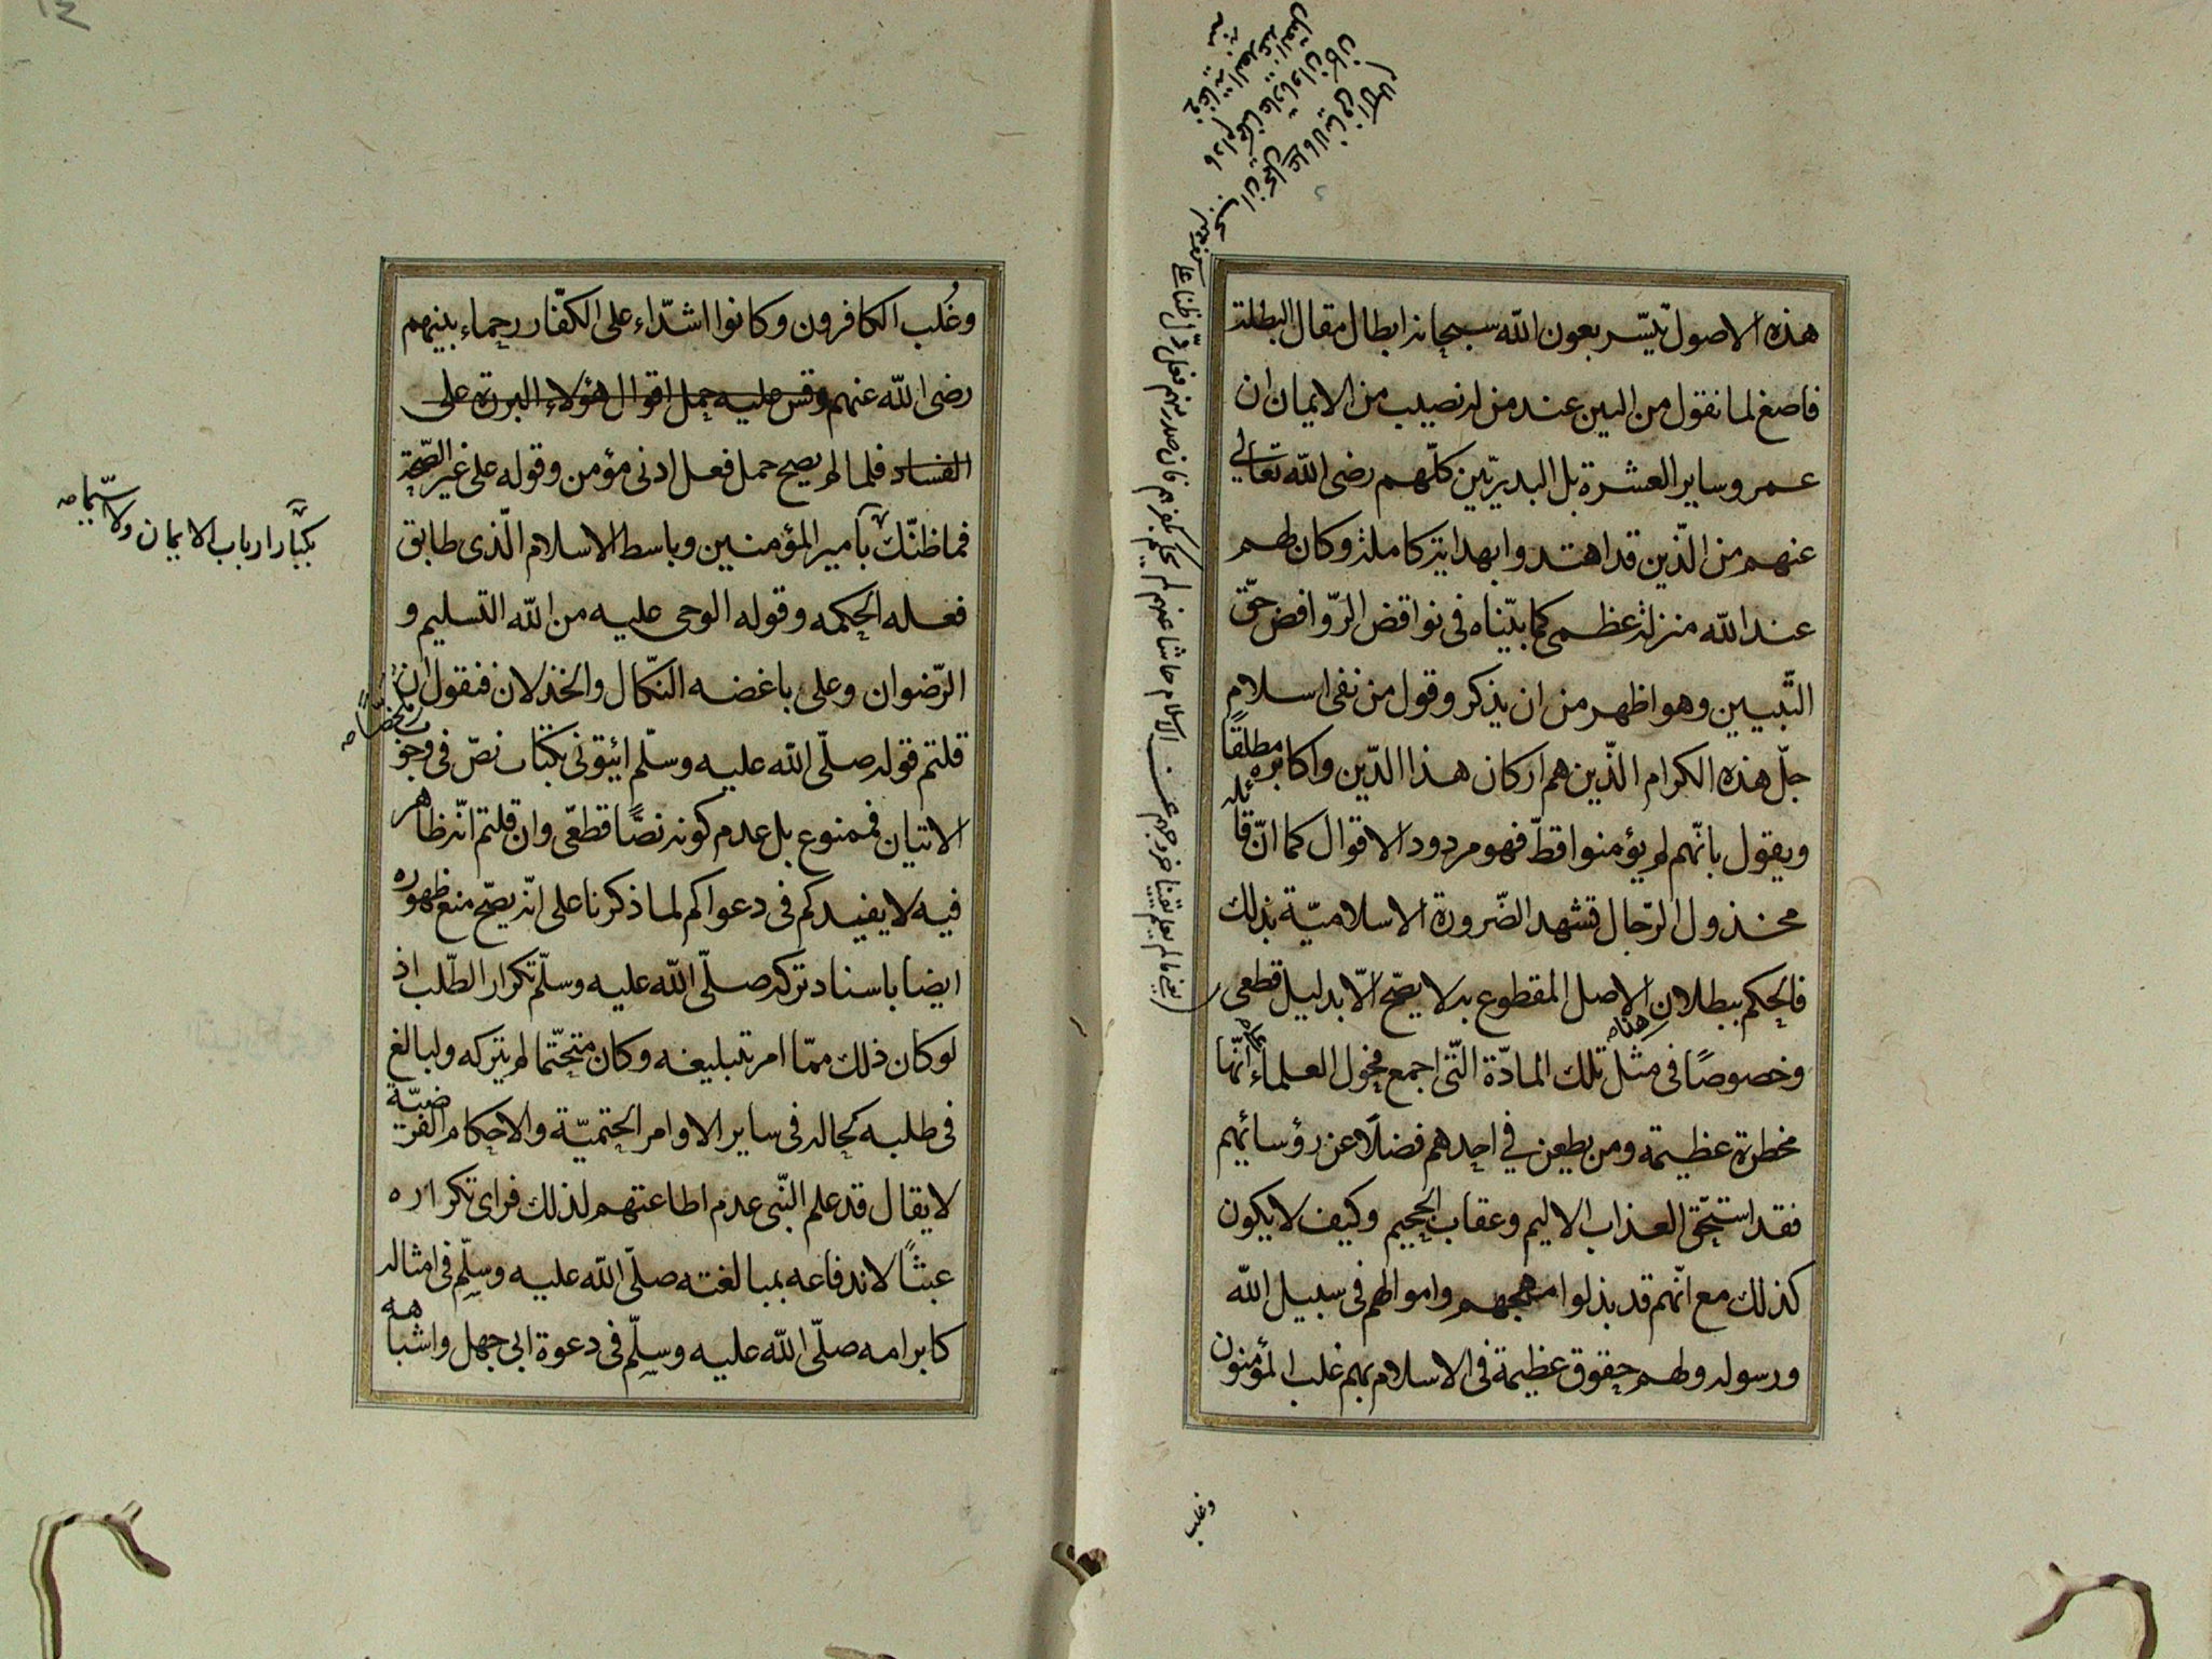 هذه الاصول تيسّر بعون الله سبحانه ابطال مقال البطلة
فاصغ لما نقول من البين عند من له نصيب من الايمان ان
عمر وساير العشرة بل البدريّين كلّهم رضى الله تعالى
عنهم من الّذين قد اهتدوا بهداية كاملة وكان لهم
عند الله منزلة عظمى كما بيّناه فى نواقض الرّوافض حقّ
التّبيين وهو اظهر من ان يذكر وقول من نفى اسلام
جلّ هذه الكرام الّذين هم اركان هذا الدّين واكابره مطلقًا
ويقول بانّهم لم يؤمنوا قطّ فهو مردود الاقوال كما انّ قائله
مخذول الرّجال تشهد الضّرورة الاسلاميّة بذلك
فالحكم ببطلان الاصل المقطوع به لا يصّح الّا بدليل قطعى
وخصوصًا فى مثل تلك المادّة الّتى اجمع فحول العلماء انّها
مخطرة عظيمة ومن يطعن فى احدهم فضلًا عن رؤسائهم
فقد استحقّ العذاب الاليم وعقاب الجحيم وكيف لا يكون
كذلك مع انّهم قد بذلوا مهجهم واموالهم فى سبيل الله
ورسوله ولهم حقوق عظيمة فى الاسلام بهم غلب المؤمنون
وغلب
وغُلب الكافرون وكانوا اشدّاء على الكفّار رحماء بينهم
رضى الله عنهم وقس عليه حمل اقوال هؤلاء البررة على
الفساد فلما لم يصح حمل فعل ادنى مؤمن وقوله على غير الصّحة
فما ظنّك بأمير المؤمنين وباسط الاسلام الّذى طابق
بكبّار ارباب الايمان ولا سيّما صه
فعله الحكمه وقوله الوحى عليه من الله التسليم و
الرّضوان وعلى باغضه النّكال والخذلان فنقول ان
قلتم قوله صلّى الله عليه وسلّم ائيتونى بكتاب نصّ فى وجو
الاتيان فممنوع بل عدم كونه نصًّا قطعّى وان قلتم انّه ظاهر
فيه لا يفيدكم فى دعواكم لما ذكرنا على انّه يصّح منع ظهوره
ايضا باسناد تركه صلّى الله عليه وسلّم تكرار الطّلب اذ
لو كان ذلك ممّا امر بتبليغه وكان متحتّما لم يتركه ولبالغ
فى طلبه كحاله فى ساير الاوامر الحتميّة والاحكام الفرضيّة
لا يقال قد علم النّبى عدم اطاعتهم لذلك فراى تكراره
عبثًا لاندفاعه بمبالغته صلّى الله عليه وسلّم فى امثاله
كابرامه صلّى الله عليه وسلّم فى دعوة ابى جهل واشباهه